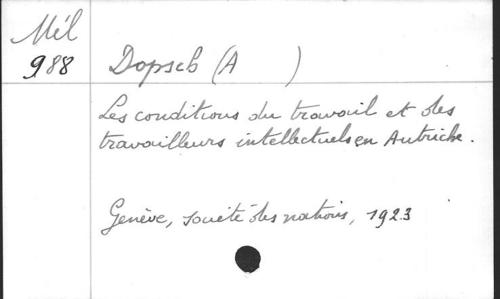 Mél
988
Dopsch (A )
Les conditions du travail et des
travailleurs intellectuels en Autriche.
Genève, société des nations, 1923